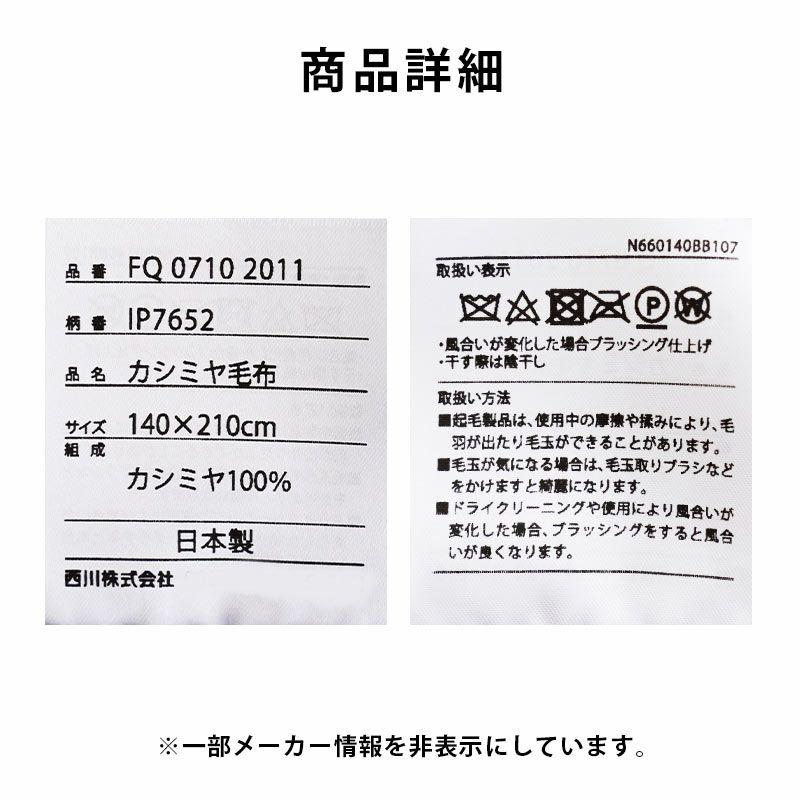 商品詳細
品番 FQ 0710 2011
柄番 IP7652
品名 カシミヤ毛布
サイズ 140×210cm
組成
カシミヤ100%
日本製
西川株式会社
N660140BB107
取扱い表示
P W
・風合いが変化した場合ブラッシング仕上げ
・干す際は陰干し
取扱い方法
■起毛製品は、使用中の摩擦や揉みにより、毛
羽が出たり毛玉ができることがあります。
■毛玉が気になる場合は、毛玉取りブラシなど
をかけますと綺麗になります。
■ドライクリーニングや使用により風合いが
変化した場合、ブラッシングをすると風合
いが良くなります。
※一部メーカー情報を非表示にしています。